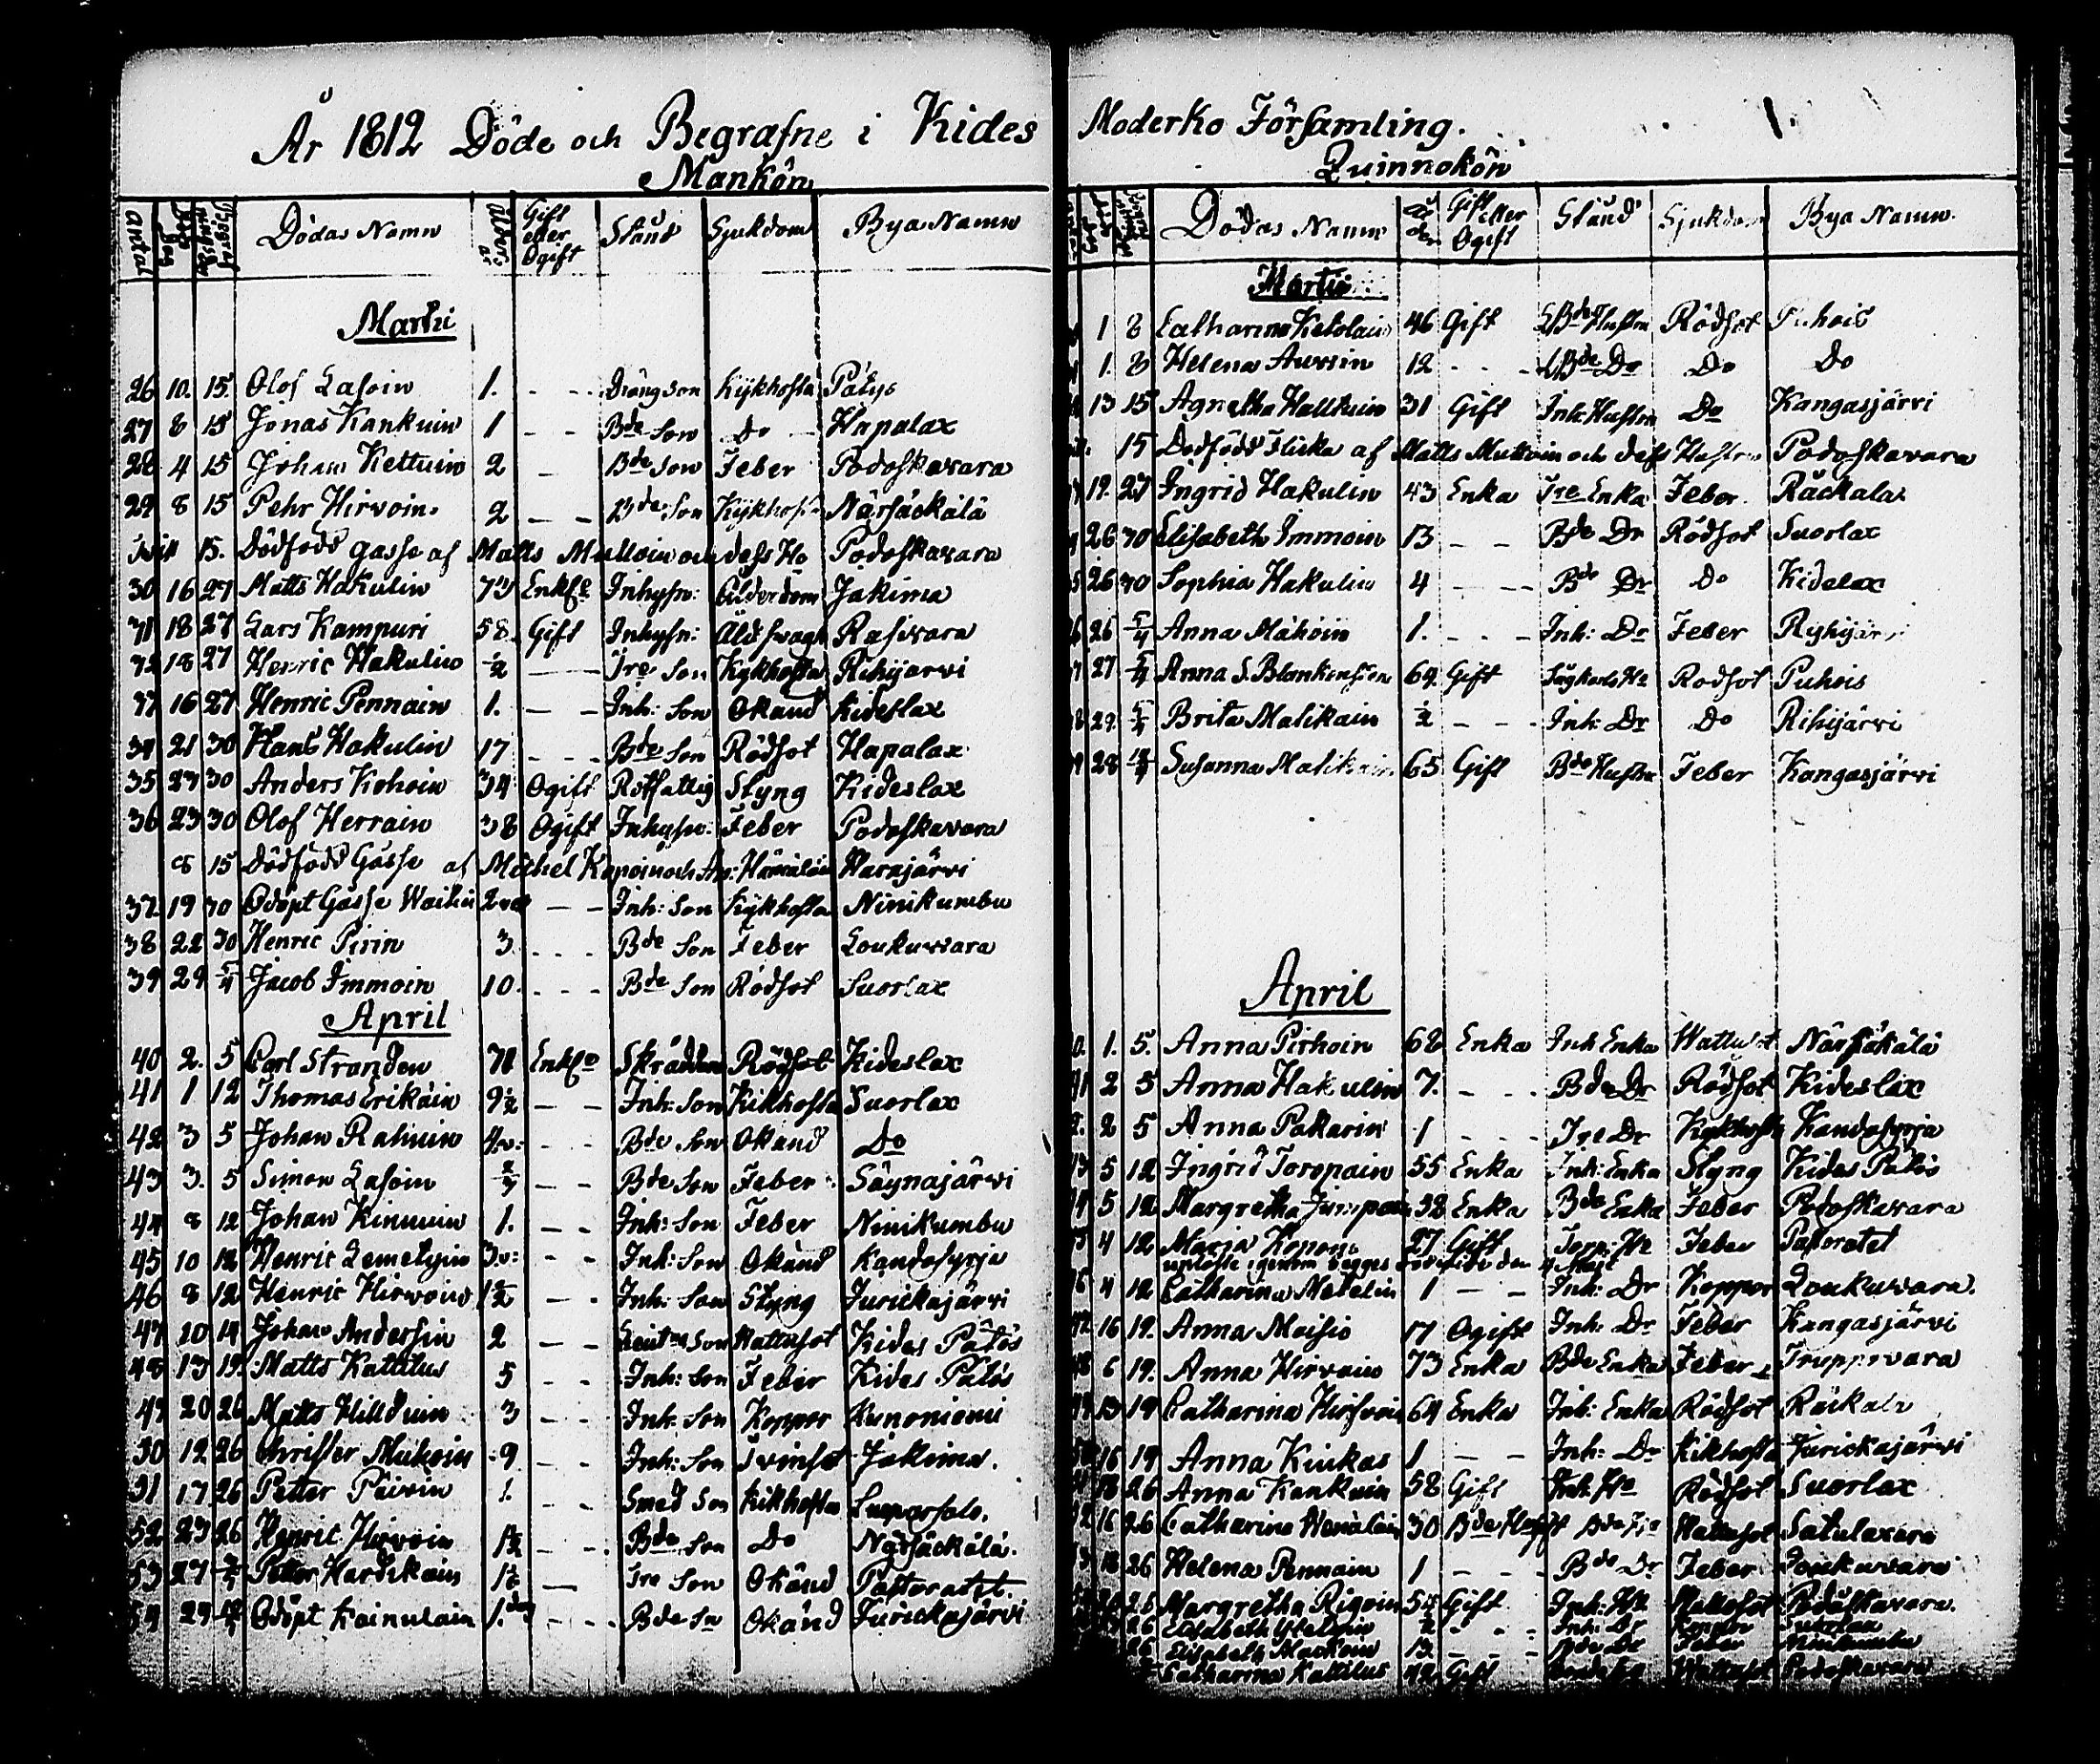 År 1812 Döde och Begrafne i Kides
Mankön
Antal Döds Dag Begraf Dödas Namn Ålder Gift eller Ogift Stånd Sjukdom Bya Namn
Martii
26 10. 15. Olof Lasoin 1. - - Drängson Kykhosta Patys
27 8 15 Jonas Kankuin 1 - - Bde Son Do Hapalax
28 4 15 Johan Kettuin 2 - Bde Son Feber Podoskavara
29 8 15 Pehr Hirvoin 2 - - Bde Son Kykhosta Närsäckälä
15. Dödfödd gosse af Matts Mulloin och dess Ho Podoskavara
30 16 27 Matts Hakulin 73 Enkl: Inhysn: Ålderdom Jakima
31 18 27 Lars Kampuri 58. Gift Inhysn: Rasivara
32 18 27 Henric Hakulin 1/2 - Tre Son Kykhosta Rihijarvi
33 16 27 Henric Pennain 1. - - Inh: Son Okänd Kideslax
34 21 30 Hans Hakulin 17 - - Bde Son Rödsot Hapalax
35 23 30 Anders Kohoin 34 Ogift Rotfattig Styng Kideslax
36 23 30 Olof Herrain 38 Ogift Inhysn: Feber Podoskavara
8 15 Dödfödd Gosse af Michel Kapoin och Harajärvi
37 19 30 Odöpt Gosse Waikin 2 - - Inh: Son Kykhosta Ninikumbu
38 22 30 Henric Pirin 3. - - Bde Son Feber Loukuvara
39 29 5/4 Jacob Immoin 10. - - Bde Son Rödsot Suorlax
April
40 2. 5 Carl Stranden 71 Enkl: Skräddare Rödsot Kideslax
41 1 12 Thomas Erikäin 9 1/2 - - Inh: Son Kikhosta Suorlax
42 3 5 Johan Rahuin - - Bde Son Okänd Do
43 3. 5 Simon Lasoin - - Bde Son Feber Säynajärvi
44 8 12 Johan Kinnuin 1. - - Inh: Son Feber Ninikumbu
45 10 12 Henric Lemetyin 3v: - - Inh: Son Okänd Kandosyrja
46 8 12 Henric Hirvoin 1 1/2 - - Inh: Son Styng Jurickajärvi
47 10 14 Johan Andersin 2 - - Son Wattusot Kides Patös
48 13 19. Matts Kattilus 5 - - Inh: Son Feber Kides Patös
49 20 26 Matts Hillduin 3 - - Inh: Son Koppor Kunoniemi
50 12 26 Christer Mukoin 9 - - Inh: Son Tvinsot Jakima.
51 17 26 Petter Päivin 1. - - Smed Son Kikhosta
52 23 26 Henric Hirvoin 1 1/2 - - Bde Son Do Närsäckälä.
53 27 3/5 Petter Hardikain - Tre Son Okänd Pastoratet
54 29 Odöpt Kainulain 1. dag - - Bde Sn Okänd Jurickajärvi
Moderko Församling. 1.
Quinnokön
Dödas Namn Ålder Gift eller Ogift Stånd Sjukdom Bya Namn.
Martii
1 8 Catharina Ketolain 46 Gift Hustru Rödsot Puhois
1. 8 Helena Aurrin 12 - - - Bde Dr Do Do
13 15 Agnetha Halltuin 31 Gift Inh Hustru Do Kangasjärvi
15 Dödfödd Flicka af Matts Muttoin och dess Hustru Podoskavara
19. 27 Ingrid Hakulin 43 Enka Tre Enka Feber. Räckala
26 30 Elisabeth Immoin 13 - - Bde Dr Rödsot Suorlax
26 30 Sophia Hakulin 4 - - - Bde Dr Do Kidelax
26 5/4 Anna Mäkoin 1. - - - Inh: Dr Feber Rihijärvi
27 5/4 Anna S. Blankenstein 64. Gift Rödsot Puhois
29. 5/4 Brita Malikain 1/2 - - - Inh: Dr Do Rihijärvi
28 Susanna Malikain 65 Gift Bde Hustru Feber Kangasjärvi
April
1. 5. Anna Pirhoin 68 Enka Inh Enka Wattusot Närsäkälä
2 5 Anna Hakulin 7. - - - Bde Dr Rödsot Kideslax
2 5 Anna Pakarin 1 - - - Tre Dr Kykhosta Kandosyrja
5 12 Ingrid Toropain 55 Enka Inh: Enka Styng Kides Patös
5 12 Margretha 38 Enka Bde Enka Feber Podoskavara
4 12 Maria Kopon 27 Gift Torp: Ho Feber Pastoratet
4 12 Catharina Metelin 1 - - Inh: Dr Koppor Loukuvara.
16 19. Anna Moisio 17 Ogift Inh: Dr Feber Kangasjärvi
6 19. Anna Hirvoin 73 Enka Bde Enka Feber Truppovara
13 19 Catharina Hirsvoin 64 Enka Inh: Enka Rödsot Räckala
16 19 Anna Kinkas 1 - - Inh: Dr Kikhosta Jurickajärvi
18 26 Anna Kankuin 58 Gift Inh Ho Rödsot Suorlax
16 26 Catharina Hämäläin 30 Wattusot Satulavara
18 26 Helena Pennain 1 - - - Bde Dr Feber Loukuvara
Margretha Rigoin 54 Gift Inh: Ho Wattusot Podoskavara.
26 Elisabeth 2 - - Inh: Dr Koppor Suorlax
26 Elisabeth Mackoin 13 - - Bde Dr Feber Ninikumbu
Catharina Kattilus 42 Gift Wattusot Podoskavara